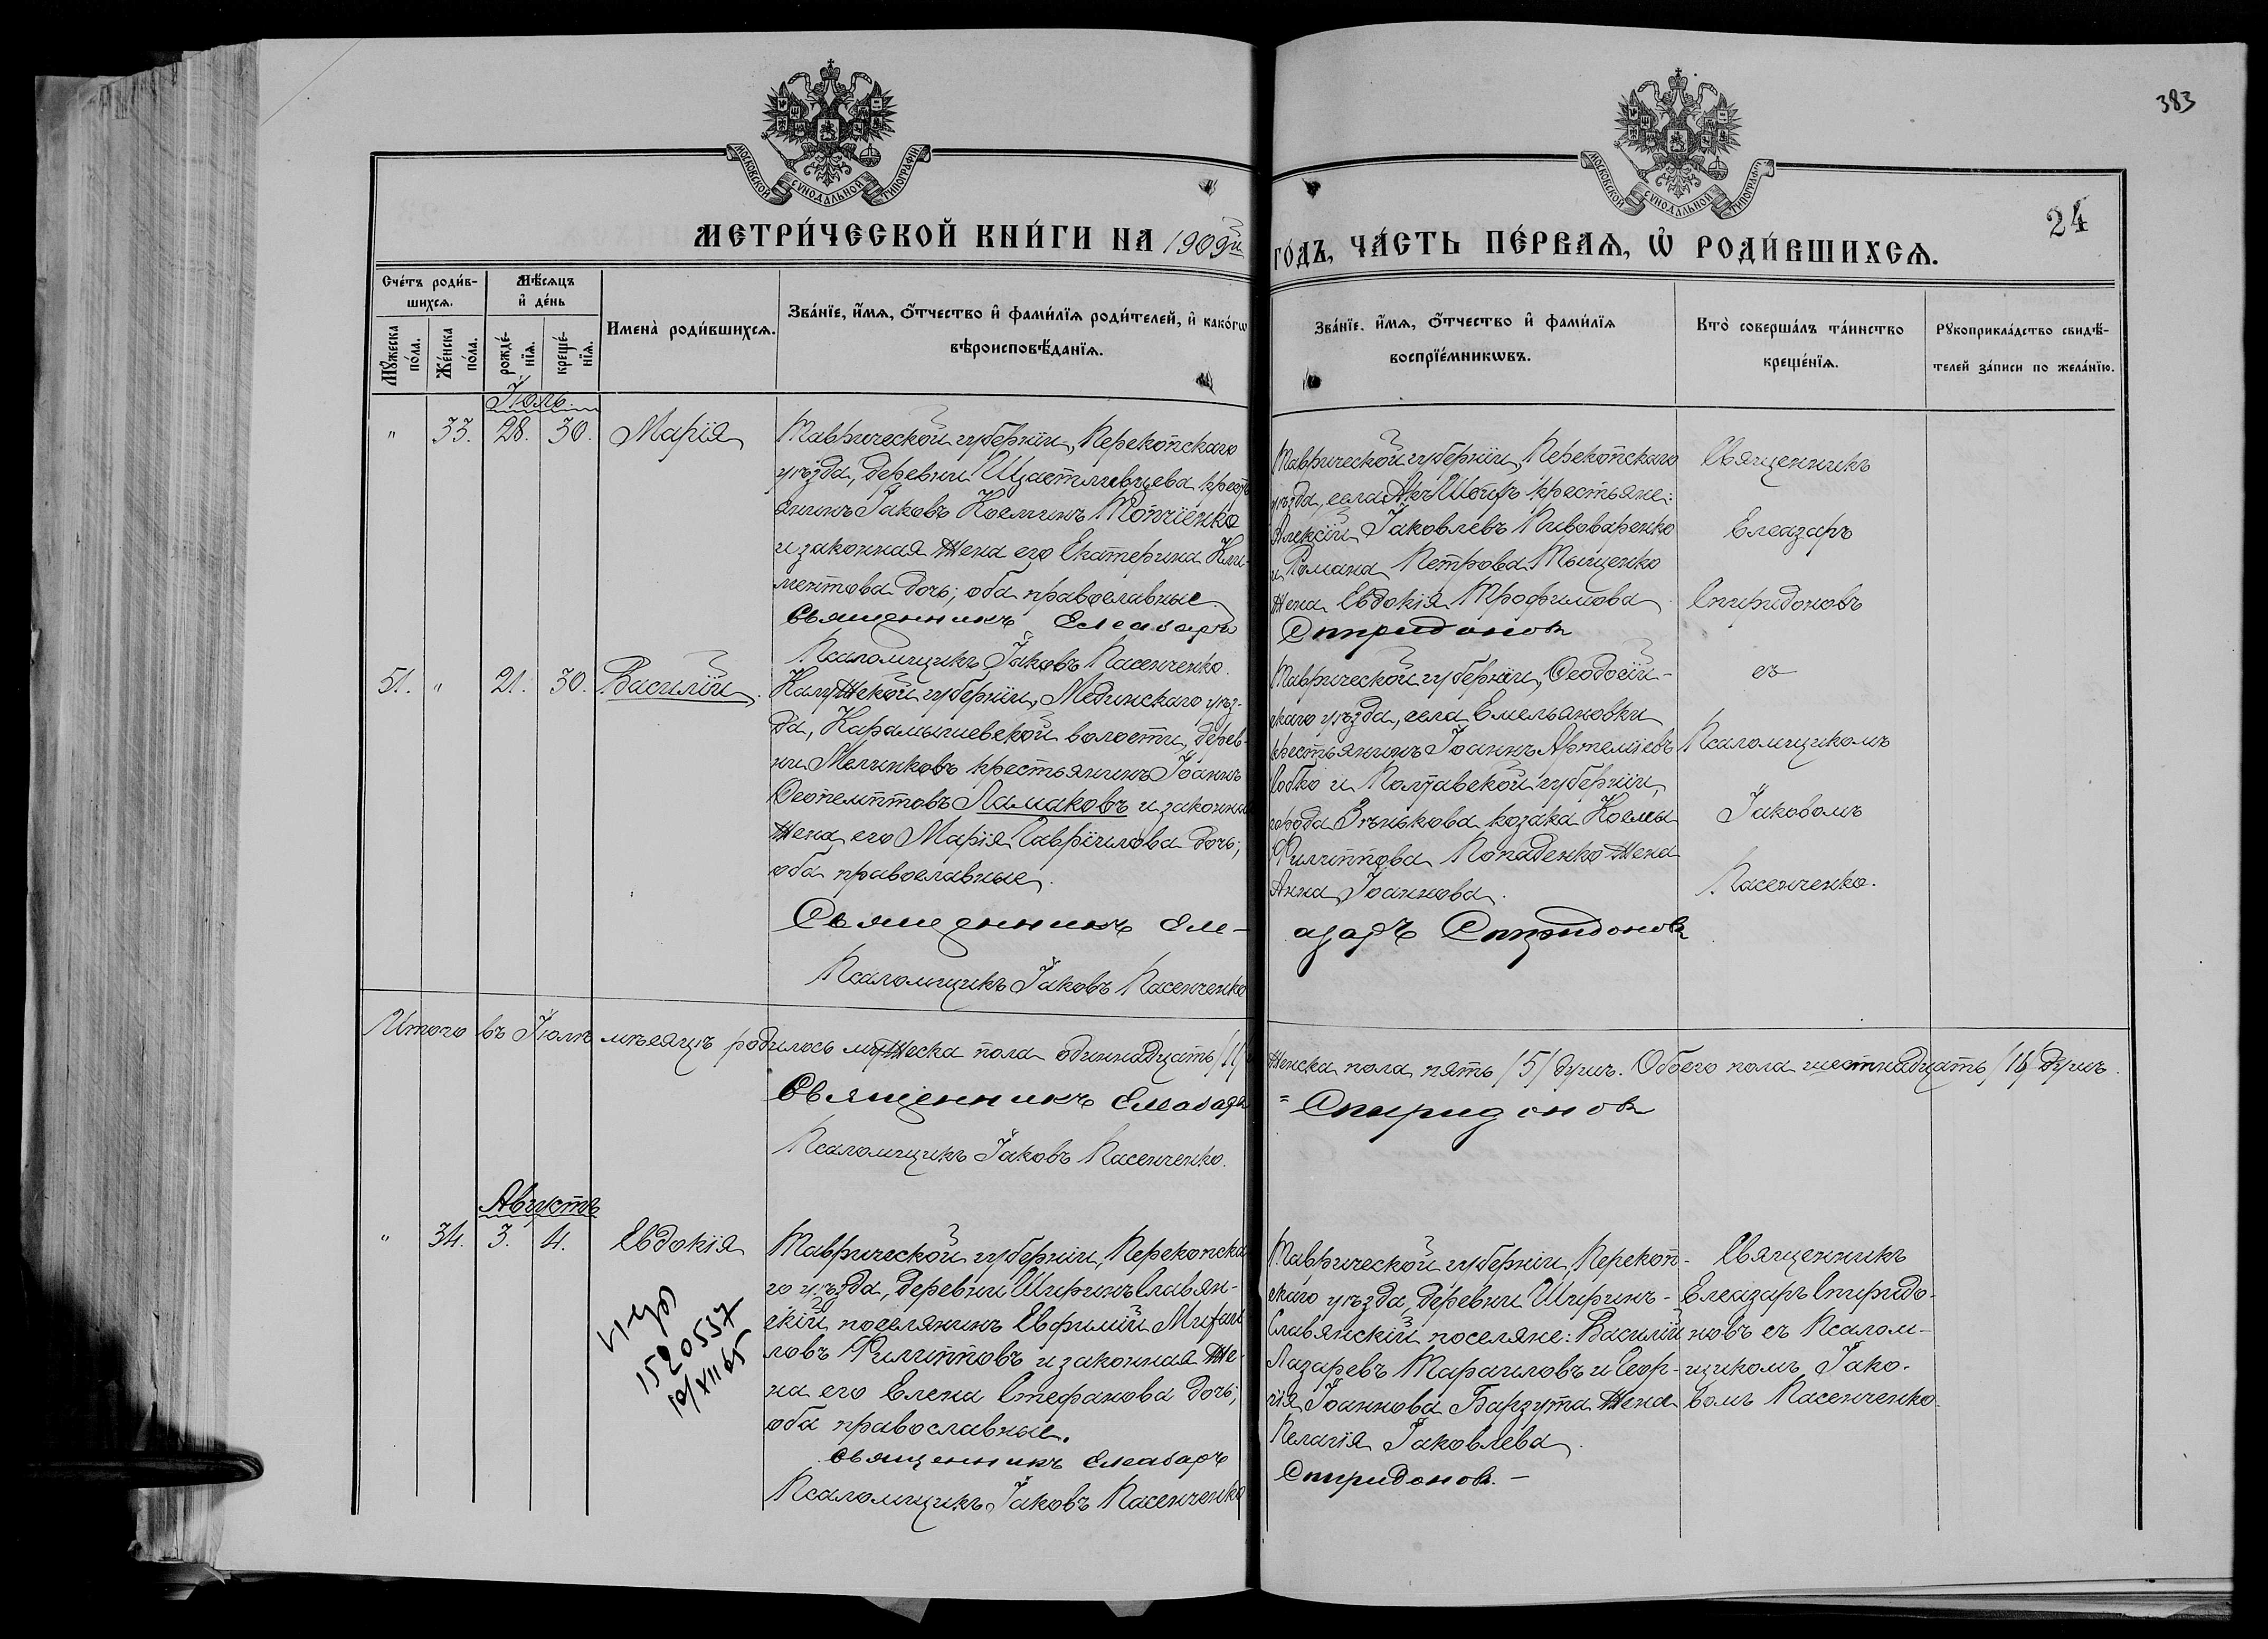 383
24
МОСКОВСКОЙ СѴНОДАЛЬНОЙ ТИПОГРАФІИ
МОСКОВСКОЙ СѴНОДАЛЬНОЙ ТИПОГРАФІИ
МЕТРИ́ЧЕСКОЙ КНИ́ГИ НА 1909й
ГО́ДЪ, ЧА́СТЬ ПЕ́РВАѦ, Ѡ҆ РОДИ́ВШИХСѦ.
Сче́тъ роди́в-
шихсѧ.
Мꙋжеска по́ла.
Же́нска по́ла.
Мѣ́сѧцъ
и҆ де́нь
рожде́-
нїѧ.
креще́-
нїѧ.
Имена̀ роди́вшихсѧ.
Зва́нїе, и҆́мѧ, ѻ҆́тчество и҆ фами́лїѧ роди́телей, и҆ како́гѡ
вѣроисповѣ́данїѧ.
Зва́нїе, и҆́мѧ, ѻ҆́тчество и҆ фами́лїѧ
воспрїе́мникѡвъ.
Кто̀ соверша́лъ та́инство
креще́нїѧ.
Рꙋкоприкла́дство свидѣ́-
телей за́писи по жела́нїю.
Іюль.
" 33. 28. 30. Марія
Таврической губерніи, Перекопскаго
уѣзда, деревни Щастливцева крест-
янинъ Іаковъ Косминъ Топчіенко
и законная жена его Екатерина Кли-
ментова дочь; оба православные.
Священникъ Елеазаръ
Псаломщикъ Іаковъ Пасенченко.
Таврической губерніи, Перекопскаго
уѣзда, села Акъ Шеихъ крестьяне:
Алексій Іаковлевъ Пивоваренко
и Романа Петрова Тыщенко
жена Евдокія Трофимова
Спиридоновъ
Священникъ
Елеазаръ
Спиридоновъ
съ
Псаломщикомъ
Іаковомъ
Пасенченко.
51. " 21. 30. Василій.
Калужской губерніи, Медынскаго уѣз-
да, Карамышевской волости, дерев-
ни Мелинковъ крестьянинъ Іоаннъ
Ѳеопемптовъ Ламаковъ и законная
жена его Марія Гавріилова дочь;
оба православные.
Священникъ Еле-
Псаломщикъ Іаковъ Пасенченко
Таврической губерніи, Ѳеодосій-
скаго уѣзда, села Емельановки
крестьянинъ Іоаннъ Артеміевъ
Собко и Полтавской губерніи,
города Зѣнькова козака Космы
Филиппова Попаденко жена
Анна Іоаннова.
азаръ Спиридоновъ
Итого въ Іюлѣ мѣсяцѣ родилось мужеска пола одиннадцать /11/ и
женска пола пять /5/ душъ. Обоего пола шестнадцать /16/ душъ.
Священникъ Елеазаръ
= Спиридоновъ
Псаломщикъ Іаковъ Пасенченко.
Августъ
" 34. 3. 4. Евдокія
1520537
19/XII 65
Таврической губерніи, Перекопска-
го уѣзда, деревни Ширинъ Славян-
скій поселянинъ Евфимій Михаи-
ловъ Филипповъ и законная же-
на его Елена Стефанова дочь;
оба православные.
Священникъ Елеазаръ
Псаломщикъ Іаковъ Пасенченко
Таврической губерніи, Перекоп-
скаго уѣзда, деревни Ширинъ-
Славянскій поселяне: Василій
Лазаревъ Тараиловъ и Геор-
гія Іоаннова Барзута жена
Пелагія Іаковлева.
Спиридоновъ. -
Священникъ
Елеазаръ Спиридо-
новъ съ Псалом-
щикомъ Іако-
вомъ Пасенченко.